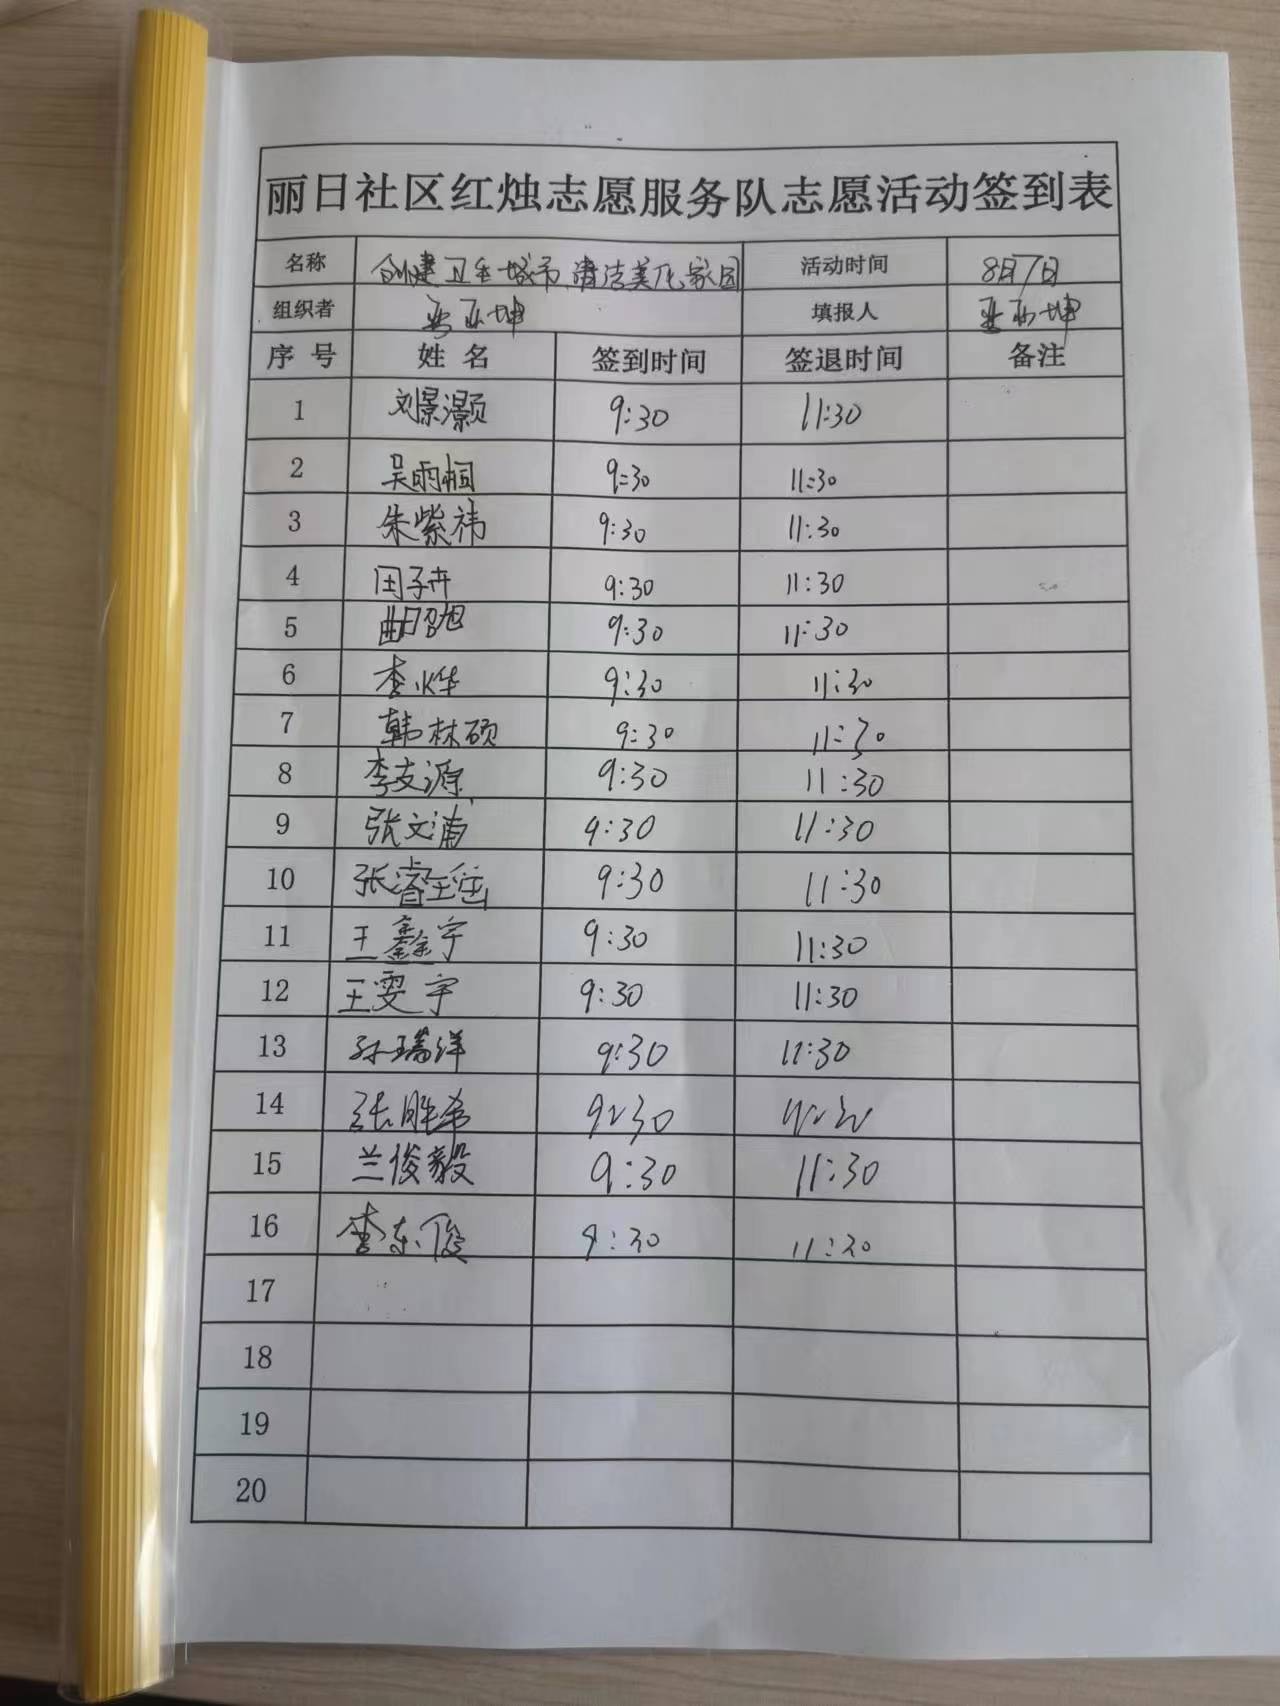 丽日社区红烛志愿服务队志愿活动签到表
名称 创建卫生城市、清洁美化家园 活动时间 8月7日
组织者 亚坤 填报人 亚坤
序号 姓名 签到时间 签退时间 备注
1 刘景灏 9:30 11:30
2 吴雨桐 9:30 11:30
3 朱紫祎 9:30 11:30
4 田子卉 9:30 11:30
5 曲昭旭 9:30 11:30
6 李烨 9:30 11:30
7 韩林硕 9:30 11:30
8 李支源 9:30 11:30
9 张文浦 9:30 11:30
10 张睿 9:30 11:30
11 王鑫宇 9:30 11:30
12 王雯宇 9:30 11:30
13 孙瑞洋 9:30 11:30
14 张胜希 9:30 11:30
15 兰俊毅 9:30 11:30
16 李东俊 9:30 11:30
17
18
19
20